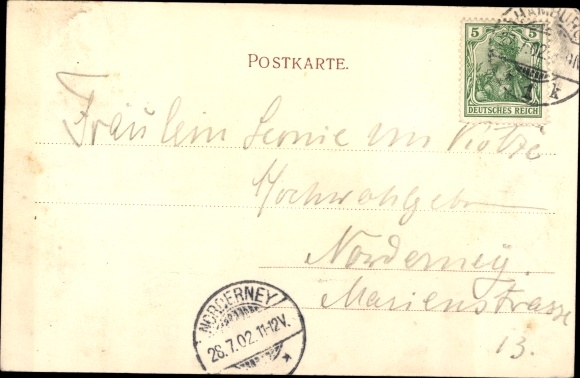 POSTKARTE.
5 5
DEUTSCHES REICH
HAMBURG
1 k
Fräulein Leonie von
Hochwohlgeb
Norderney.
Marienstrasse
13.
NORDERNEY
26.7.02.11-12V.
*